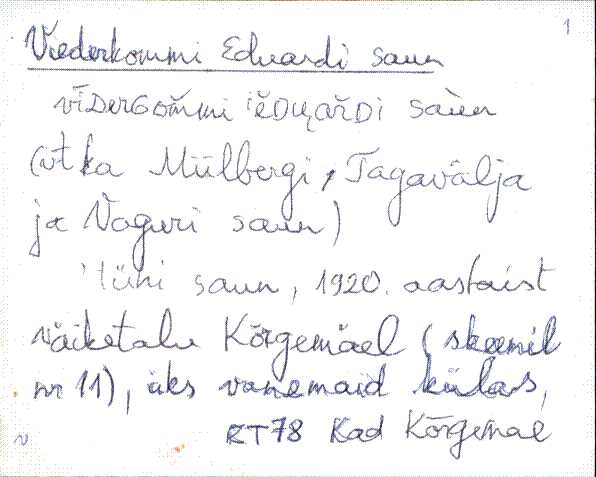 1
Viederkommi Eduardi saun
(vt ka Mülbergi, Tagavälja
ja Noguri saun)
saun, 1920. aastaist
väiketalu Kõrgemäel (skeemil
nr 11), üks vanemaid külas,
KT78 Kad Kõrgemäe